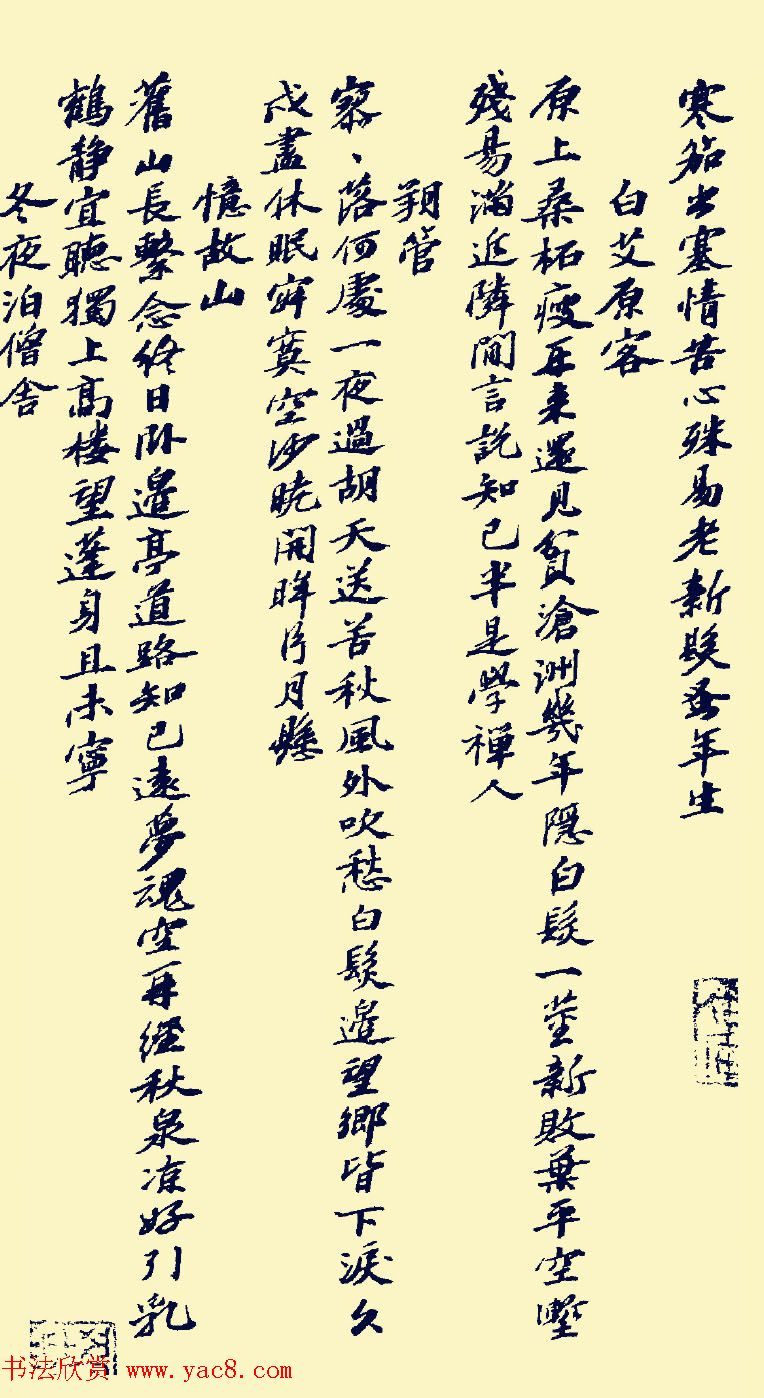 寒笳出塞情苦心殊易老新髮蚤年生
白艾原客
原上桑柘瘦再来還見貧滄洲幾年隠白髮一莖新敗葉平空塹
殘易滿近隣間言説知己半是學禅人
朔管
寥、落何處一夜過胡天送苦秋風外吹愁白髮邉望鄉皆下淚久
戍盡休眠寂寞空沙晓開眸片月懸
憶故山
舊山長繫念終日卧邉亭道路知已遠夢魂空再經秋泉凉好引乳
鶴静宜聽獨上高楼望蓬身且未寧
冬夜泊僧舍
书法欣赏 www.yac8.com